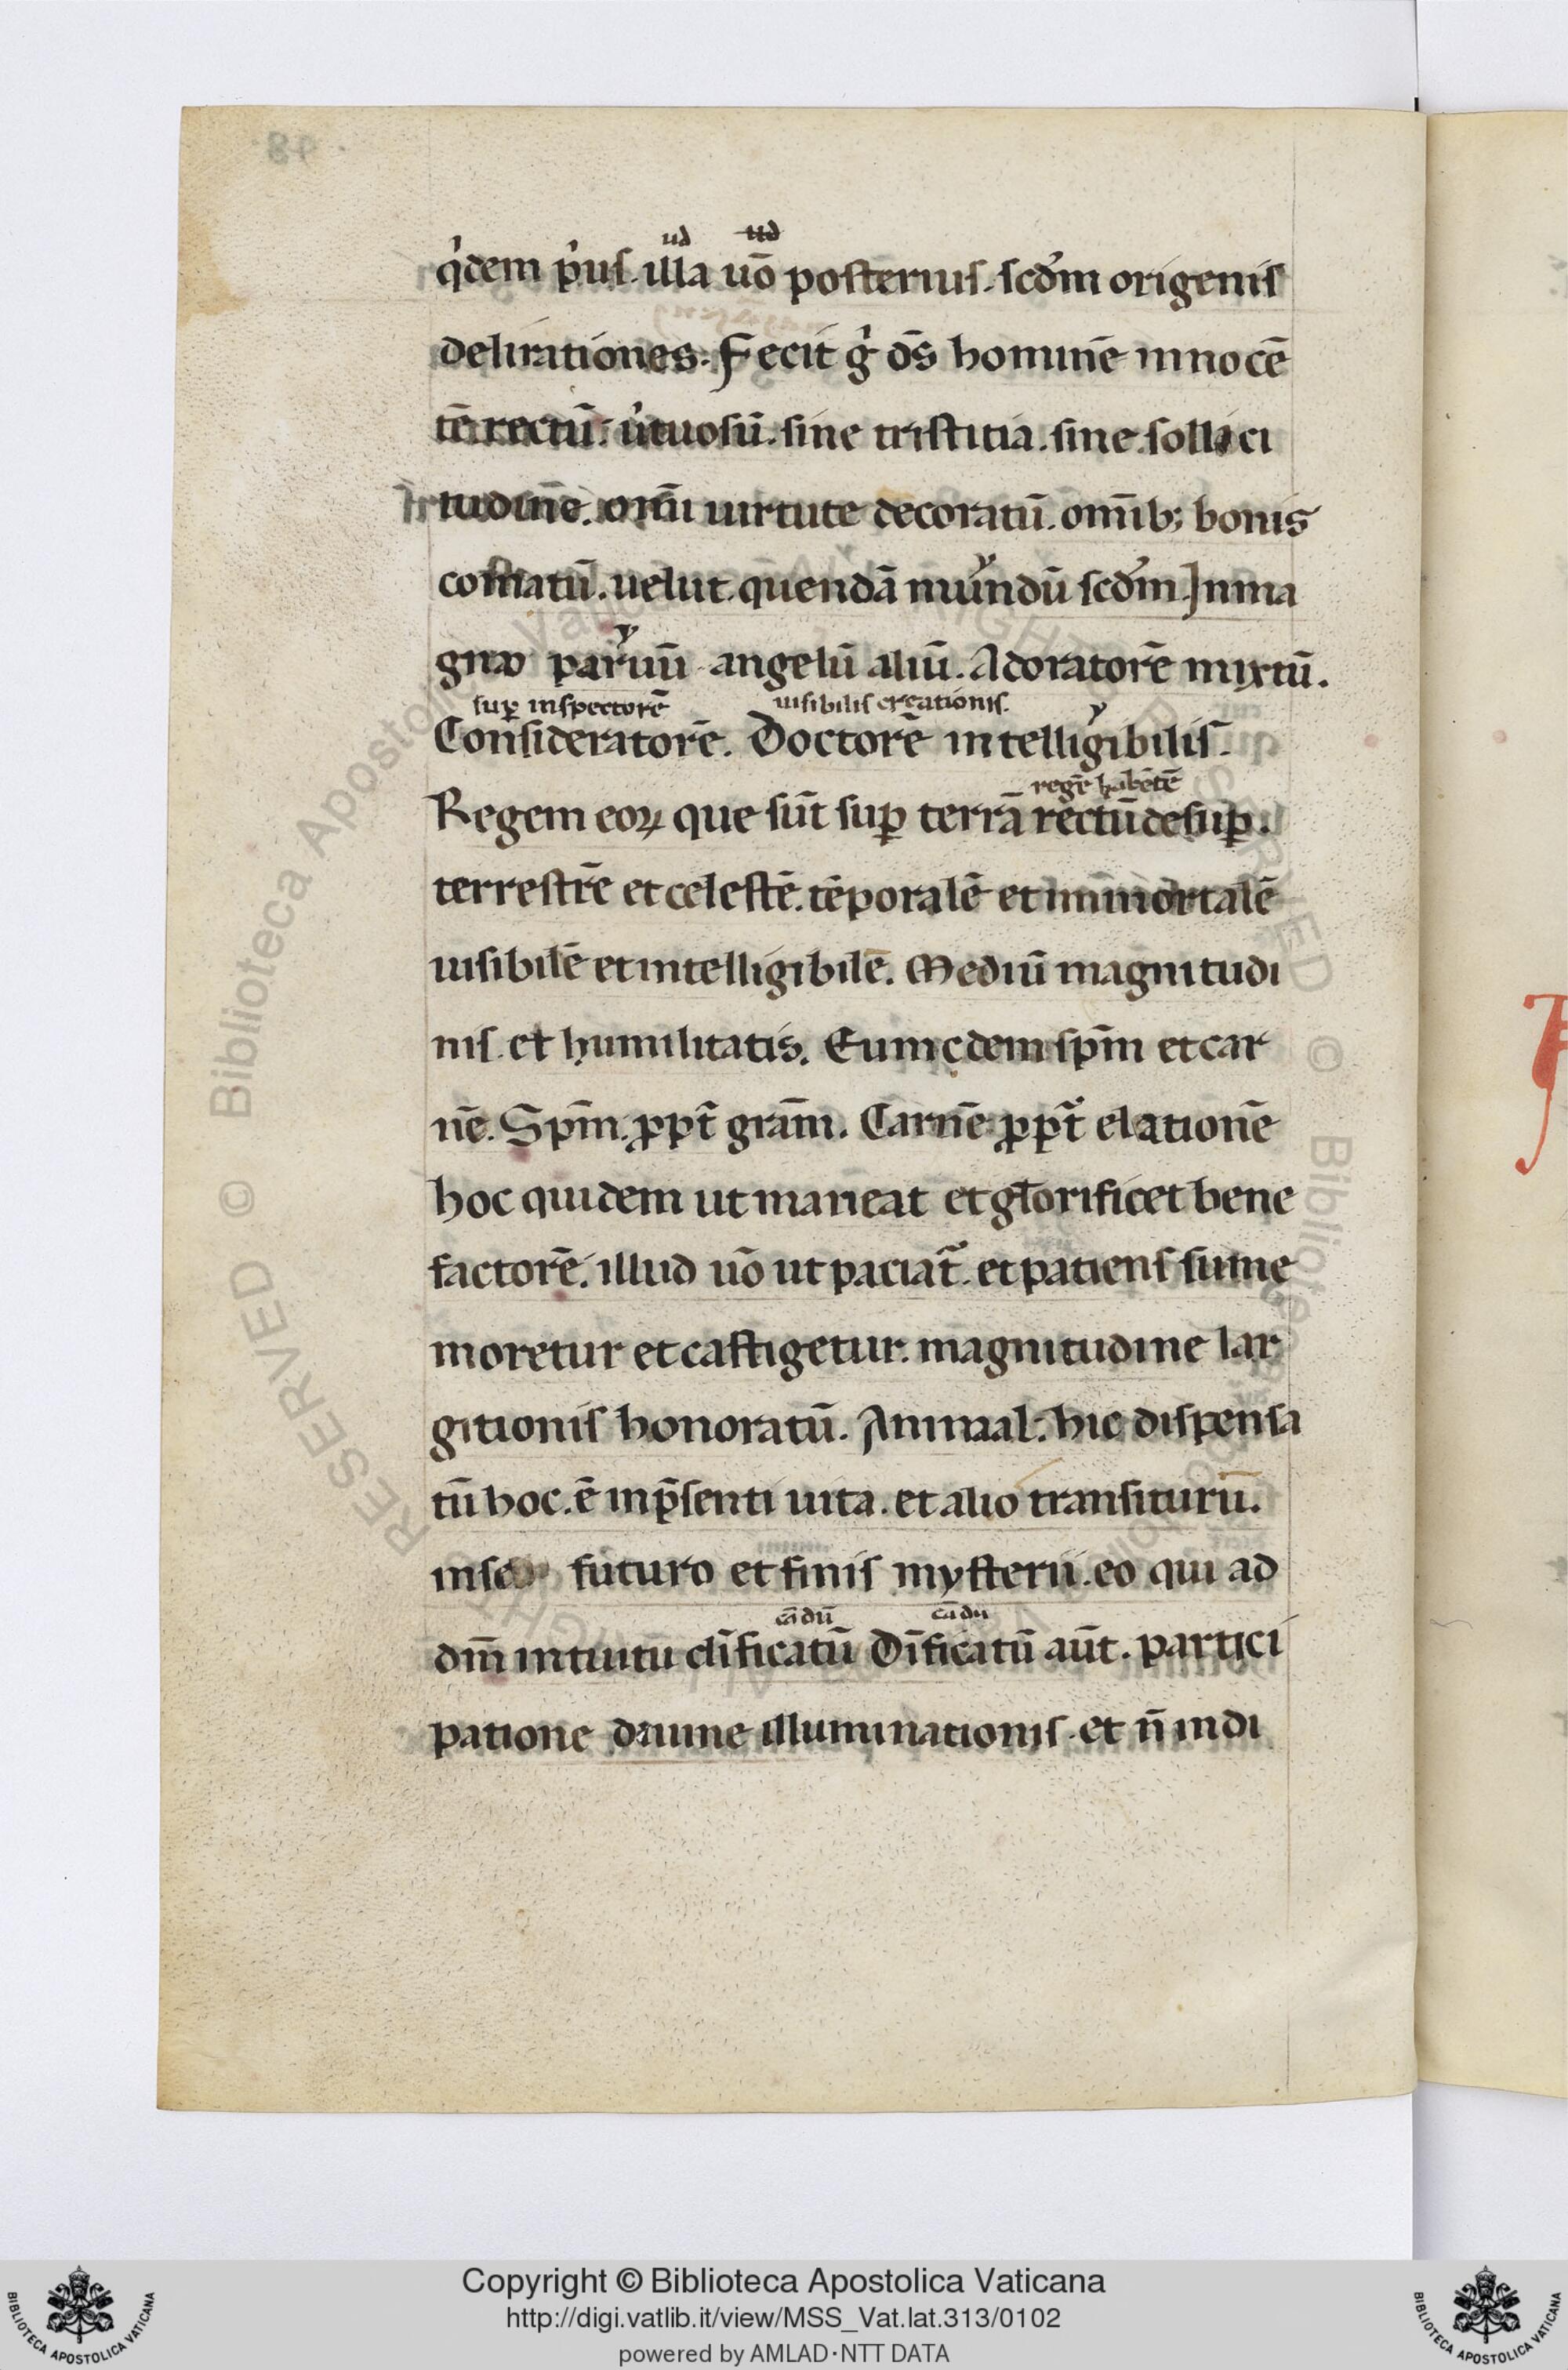 ud ud
q̇dem p̓us. illa uō posterius. scd̓m origenis
delirationes. Fecit g̓ d̄s hominē innocē
tē rectū. u̓tuosū. sine tristitia. sine sollici
tudinē. omī uirtute decoratū. om̄ib; bonis
comatū. uelut quendā mundū scd̓m. In ma
gno paruū angelū aliū. Adoratorē mixtū.
suꝑ inspectorē uisibilis creationis.
Consideratorē. Doctorē intelligibilis.
regē habētē
Regem eoꝝ que sūt suꝑ terrā rectū desuꝑ.
terrestrē et celestē. tēporalē et inmortalē
uisibilē et intelligibilē. Mediū magnitudi
nis. et humilitatis. Eumcdem sp̄m et car
nē. Sp̄m. ꝓpt̄ grām. Carnē ꝓpt̄ elationē
hoc quidem ut maneat et glorificet bene
factorē. illud uō ut paciat̄. et patiens sume
moretur et castigetur. magnitudine lar
gitionis honoratū. Animal. hic dispensa
tū hoc. ē in p̄senti uita. et alio transiturū.
in futuro et finis mysterii. eo qui ad
cādū cādū
dm̄ intuitu dīficatū Dīficatū aūt. partici
patione diuine illuminationis. et n̄ indi
Copyright © Biblioteca Apostolica Vaticana
http://digi.vatlib.it/view/MSS_Vat.lat.313/0102
powered by AMLAD·NTT DATA